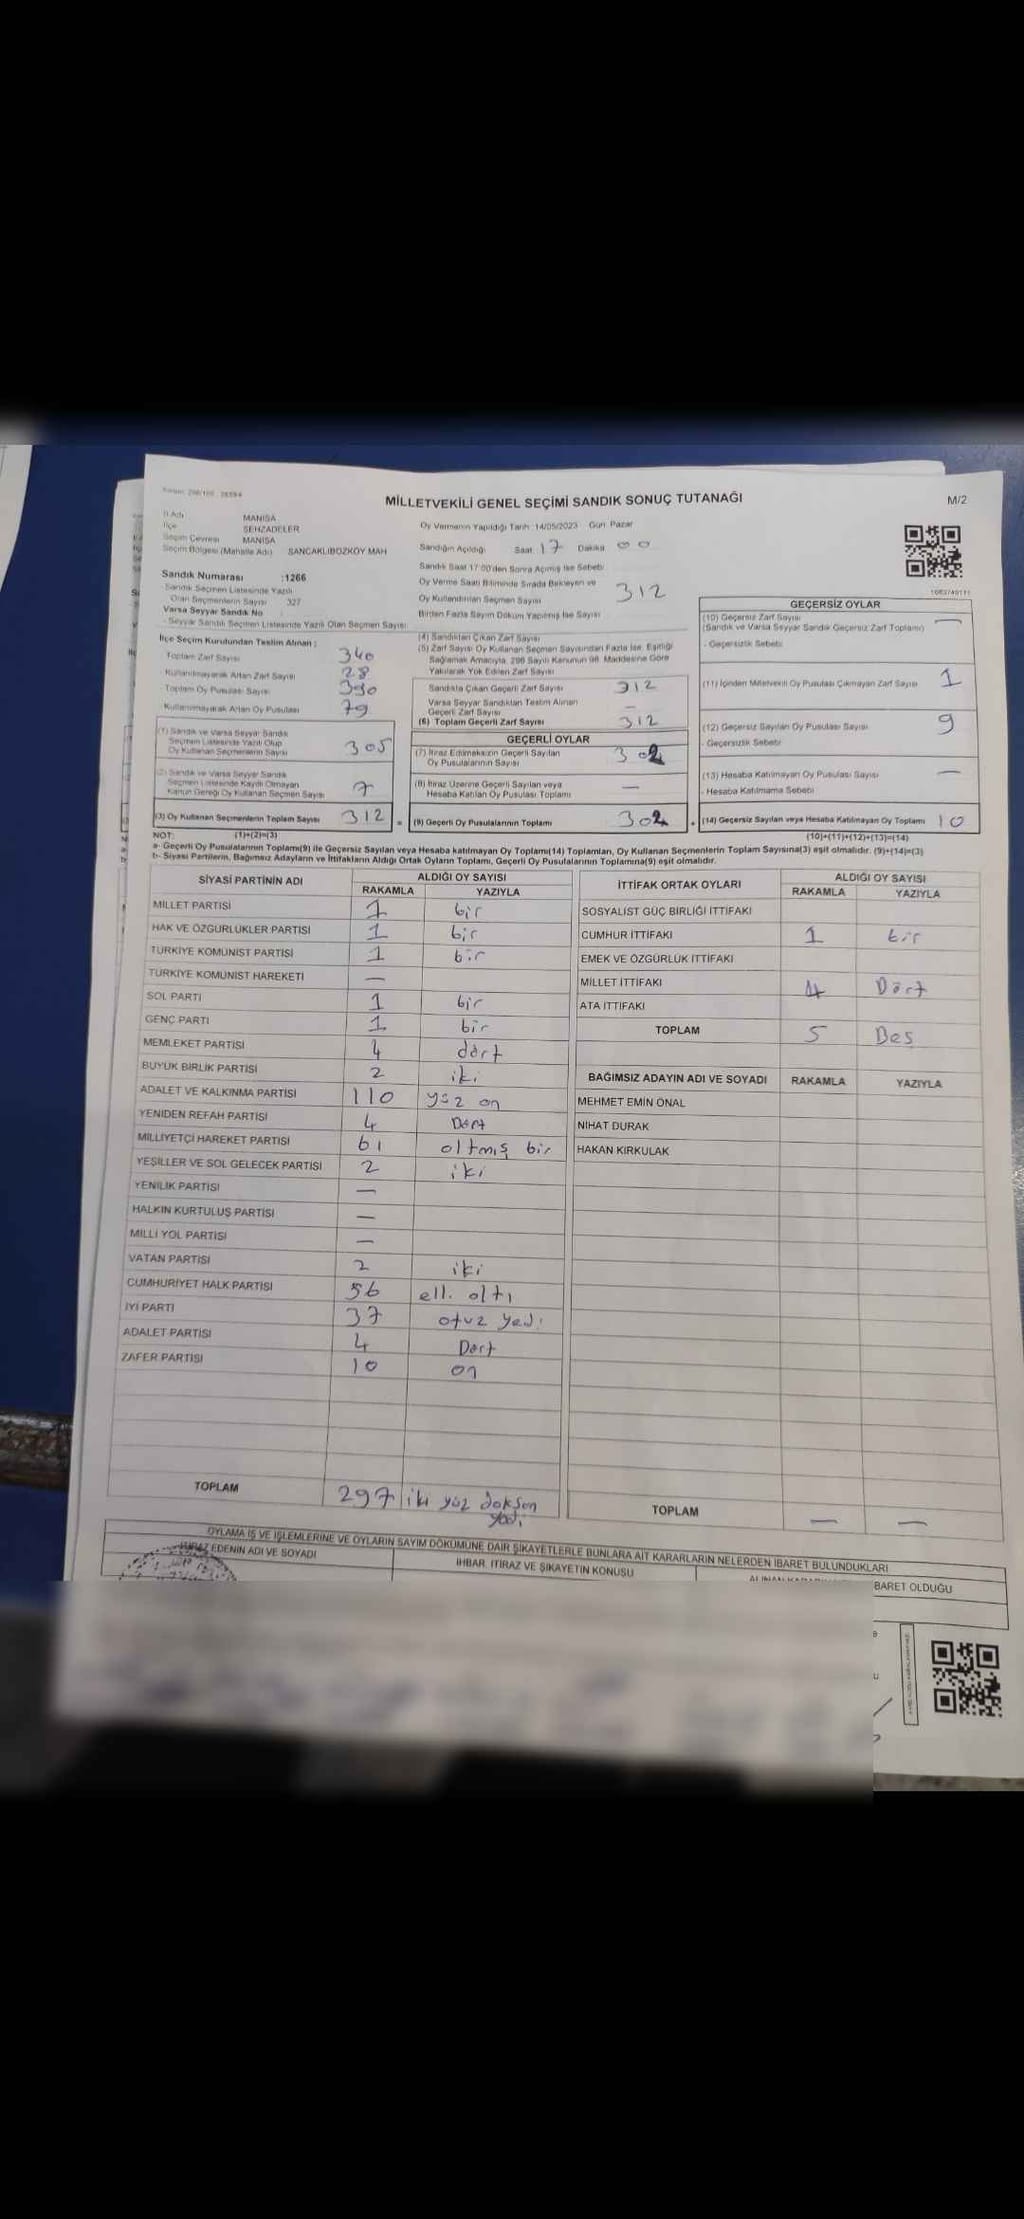 MİLLETVEKİLİ GENEL SEÇİMİ SANDIK SONUÇ TUTANAĞI
M/2
İl Adı MANİSA
İlçe ŞEHZADELER
Seçim Çevresi MANİSA
Seçim Bölgesi (Mahalle Adı) SANCAKLIBOZKÖY MAH
Oy Vermenin Yapıldığı Tarih :14/05/2023 Gün: Pazar
Sandığın Açıldığı Saat 17 Dakika 00
Sandık Saat 17:00'den Sonra Açılmış İse Sebebi
Oy Verme Saati Bitiminde Sırada Bekleyen ve
Oy Kullandırılan Seçmen Sayısı 312
Birden Fazla Sayım Döküm Yapılmış İse Sayısı
Sandık Numarası :1266
Sandık Seçmen Listesinde Yazılı
Olan Seçmenlerin Sayısı 327
Varsa Seyyar Sandık No
- Seyyar Sandık Seçmen Listesinde Yazılı Olan Seçmen Sayısı
İlçe Seçim Kurulundan Teslim Alınan :
Toplam Zarf Sayısı 340
Kullanılmayarak Artan Zarf Sayısı 28
Toplam Oy Pusulası Sayısı 390
Kullanılmayarak Artan Oy Pusulası 79
(1) Sandık ve Varsa Seyyar Sandık
Seçmen Listesinde Yazılı Olup
Oy Kullanan Seçmenlerin Sayısı 305
(2) Sandık ve Varsa Seyyar Sandık
Seçmen Listesinde Kaydı Olmayan
Kanun Gereği Oy Kullanan Seçmen Sayısı 7
(3) Oy Kullanan Seçmenlerin Toplam Sayısı 312
(4) Sandıktan Çıkan Zarf Sayısı
(5) Zarf Sayısı Oy Kullanan Seçmen Sayısından Fazla İse, Eşitliği
Sağlamak Amacıyla, 298 Sayılı Kanunun 98. Maddesine Göre
Yakılarak Yok Edilen Zarf Sayısı
Sandıkta Çıkan Geçerli Zarf Sayısı 312
Varsa Seyyar Sandıktan Teslim Alınan
Geçerli Zarf Sayısı —
(6) Toplam Geçerli Zarf Sayısı 312
GEÇERLİ OYLAR
(7) İtiraz Edilmeksizin Geçerli Sayılan
Oy Pusulalarının Sayısı 302
(8) İtiraz Üzerine Geçerli Sayılan veya
Hesaba Katılan Oy Pusulası Toplamı —
(9) Geçerli Oy Pusulalarının Toplamı 302
GEÇERSİZ OYLAR
(10) Geçersiz Zarf Sayısı —
(Sandık ve Varsa Seyyar Sandık Geçersiz Zarf Toplamı)
- Geçersizlik Sebebi
(11) İçinden Milletvekili Oy Pusulası Çıkmayan Zarf Sayısı 1
(12) Geçersiz Sayılan Oy Pusulası Sayısı 9
- Geçersizlik Sebebi
(13) Hesaba Katılmayan Oy Pusulası Sayısı —
- Hesaba Katılmama Sebebi
(14) Geçersiz Sayılan veya Hesaba Katılmayan Oy Toplamı 10
NOT: (1)+(2)=(3)
(10)+(11)+(12)+(13)=(14)
a- Geçerli Oy Pusulalarının Toplamı(9) ile Geçersiz Sayılan veya Hesaba katılmayan Oy Toplamı(14) Toplamları, Oy Kullanan Seçmenlerin Toplam Sayısına(3) eşit olmalıdır. (9)+(14)=(3)
b- Siyasi Partilerin, Bağımsız Adayların ve İttifakların Aldığı Ortak Oyların Toplamı, Geçerli Oy Pusulalarının Toplamına(9) eşit olmalıdır.
SİYASİ PARTİNİN ADI ALDIĞI OY SAYISI
RAKAMLA YAZIYLA
MİLLET PARTİSİ 1 bir
HAK VE ÖZGÜRLÜKLER PARTİSİ 1 bir
TÜRKİYE KOMÜNİST PARTİSİ 1 bir
TÜRKİYE KOMÜNİST HAREKETİ —
SOL PARTİ 1 bir
GENÇ PARTİ 1 bir
MEMLEKET PARTİSİ 4 dört
BÜYÜK BİRLİK PARTİSİ 2 iki
ADALET VE KALKINMA PARTİSİ 110 yüz on
YENİDEN REFAH PARTİSİ 4 Dört
MİLLİYETÇİ HAREKET PARTİSİ 61 altmış bir
YEŞİLLER VE SOL GELECEK PARTİSİ 2 iki
YENİLİK PARTİSİ —
HALKIN KURTULUŞ PARTİSİ —
MİLLİ YOL PARTİSİ —
VATAN PARTİSİ 2 iki
CUMHURİYET HALK PARTİSİ 56 elli altı
İYİ PARTİ 37 otuz yedi
ADALET PARTİSİ 4 Dört
ZAFER PARTİSİ 10 on
TOPLAM 297 iki yüz doksan
yedi
İTTİFAK ORTAK OYLARI ALDIĞI OY SAYISI
RAKAMLA YAZIYLA
SOSYALİST GÜÇ BİRLİĞİ İTTİFAKI
CUMHUR İTTİFAKI 1 bir
EMEK VE ÖZGÜRLÜK İTTİFAKI
MİLLET İTTİFAKI 4 Dört
ATA İTTİFAKI
TOPLAM 5 Beş
BAĞIMSIZ ADAYIN ADI VE SOYADI RAKAMLA YAZIYLA
MEHMET EMİN ÖNAL
NİHAT DURAK
HAKAN KIRKULAK
TOPLAM — —
OYLAMA İŞ VE İŞLEMLERİNE VE OYLARIN SAYIM DÖKÜMÜNE DAİR ŞİKAYETLERLE BUNLARA AİT KARARLARIN NELERDEN İBARET BULUNDUKLARI
EDENİN ADI VE SOYADI
İHBAR, İTİRAZ VE ŞİKAYETİN KONUSU
BARET OLDUĞU